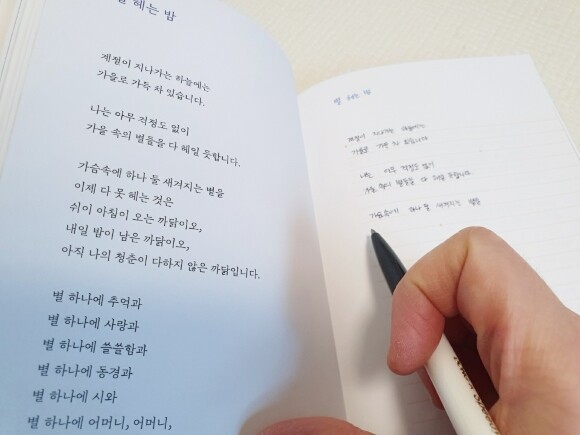 별 헤는 밤
계절이 지나가는 하늘에는
가을로 가득 차 있습니다.
나는 아무 걱정도 없이
가을 속의 별들을 다 헤일 듯합니다.
가슴속에 하나 둘 새겨지는 별을
이제 다 못 헤는 것은
쉬이 아침이 오는 까닭이오,
내일 밤이 남은 까닭이오,
아직 나의 청춘이 다하지 않은 까닭입니다.
별 하나에 추억과
별 하나에 사랑과
별 하나에 쓸쓸함과
별 하나에 동경과
별 하나에 시와
별 하나에 어머니, 어머니,
별 헤는 밤
계절이 지나가는 하늘에는
가을로 가득 차 있습니다
나는 아무 걱정도 없이
가을 속의 별들을 다 헤일 듯합니다
가슴속에 하나 둘 새겨지는 별을